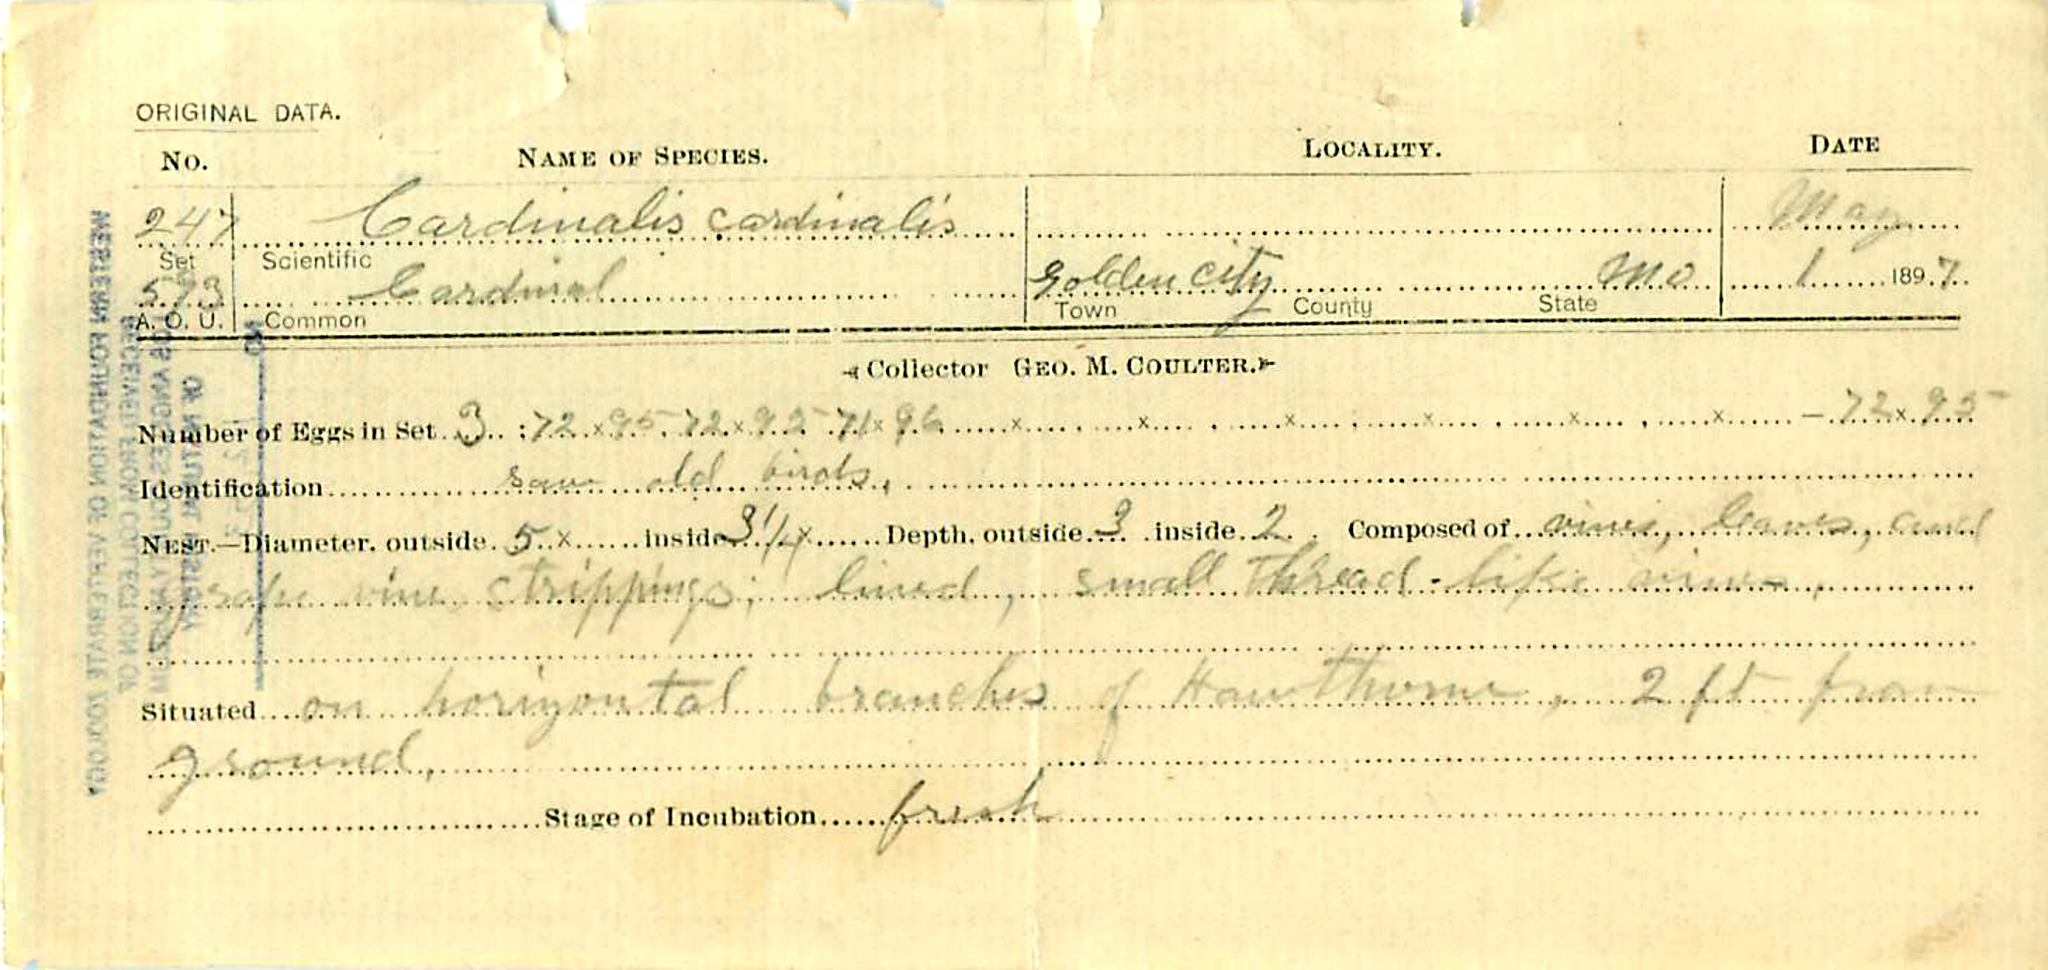 ORIGINAL DATA.
No. NAME OF SPECIES. LOCALITY. DATE
247 Cardinalis cardinalis May
Set Scientific
593 Cardinal Golden City Mo 1 1897.
A. O. U. Common Town County State
Collector GEO. M. COULTER.
Number of Eggs in Set 3 : 72 x 95 . 72 x 95 71 x 96 x x x x x x — 72 x 95
Identification saw old birds.
NEST.—Diameter. outside. 5 x inside 3 1/4 x Depth. outside 3 inside 2 . Composed of vines, leaves, and
grape vine strippings; lined, small thread-like vines.
Situated on horizontal branches of Hawthorne, 2 ft from
ground.
Stage of Incubation fresh
WESTERN FOUNDATION OF VERTEBRATE ZOOLOGY
RECEIVED FROM COLLECTION OF
LOS ANGELES COUNTY MUSEUM
OF NATURAL HISTORY
NO